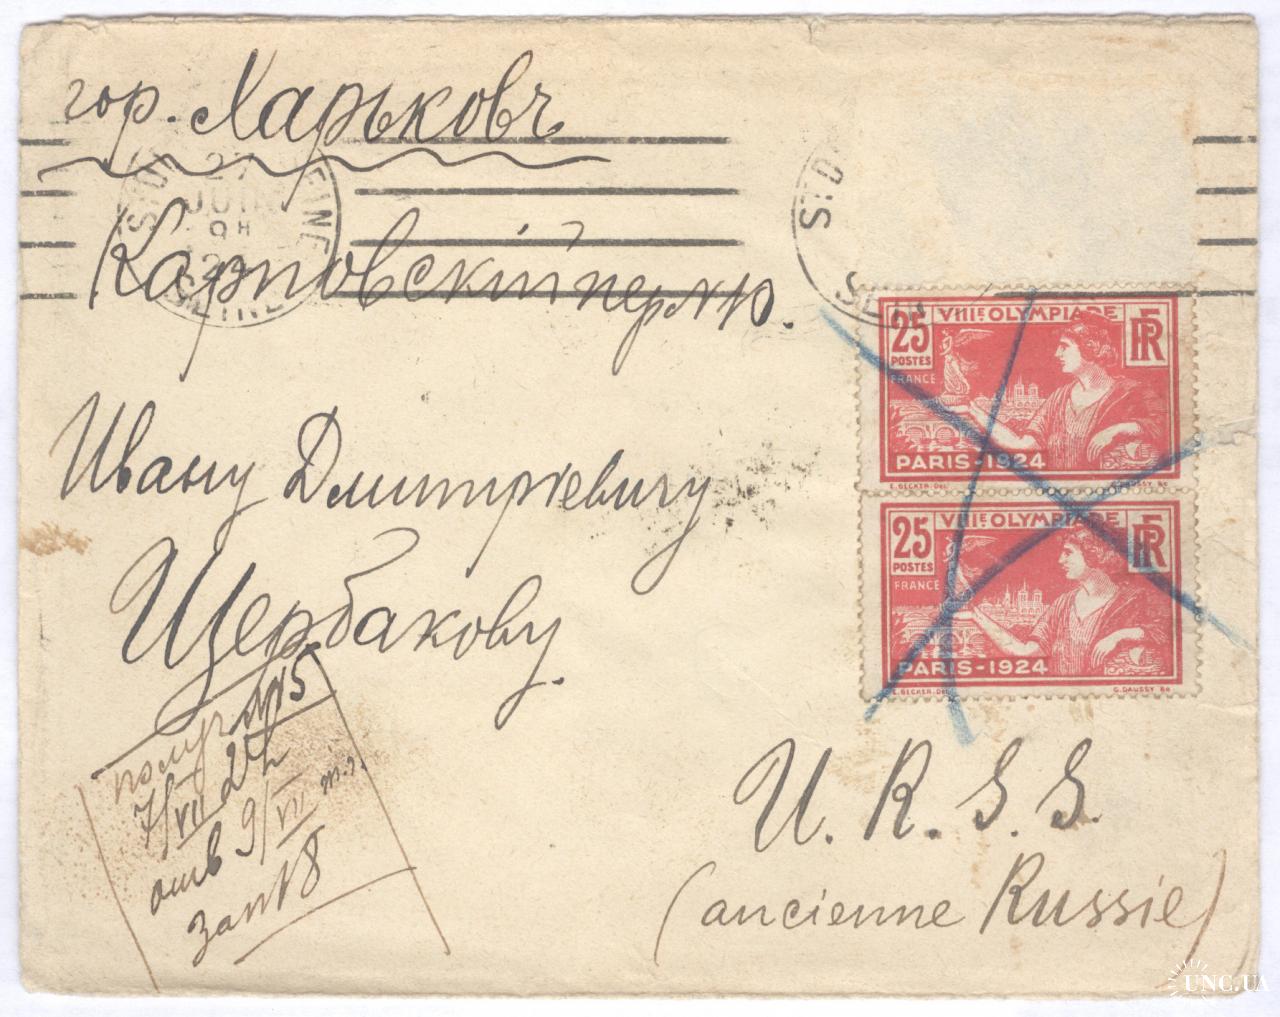 гор. Харьковъ
27
JUIN
9H
SEINE
Карповскій пер. №10.
ST D
SEIN
VIIIE OLYMPIADE
25
POSTES
FRANCE
RF
PARIS-1924
E. BECKER. DEL.
G. DAUSSY Sc
Ивану Дмитріевичу
VIIIE OLYMPIADE
25
POSTES
FRANCE
RF
PARIS-1924
E. BECKER. DEL.
G. DAUSSY Sc
Щербакову.
получ №15
7/VII 24
отв 9/VII т.г.
зап №8
U. R. S. S.
(ancienne Russie)
UNC.UA